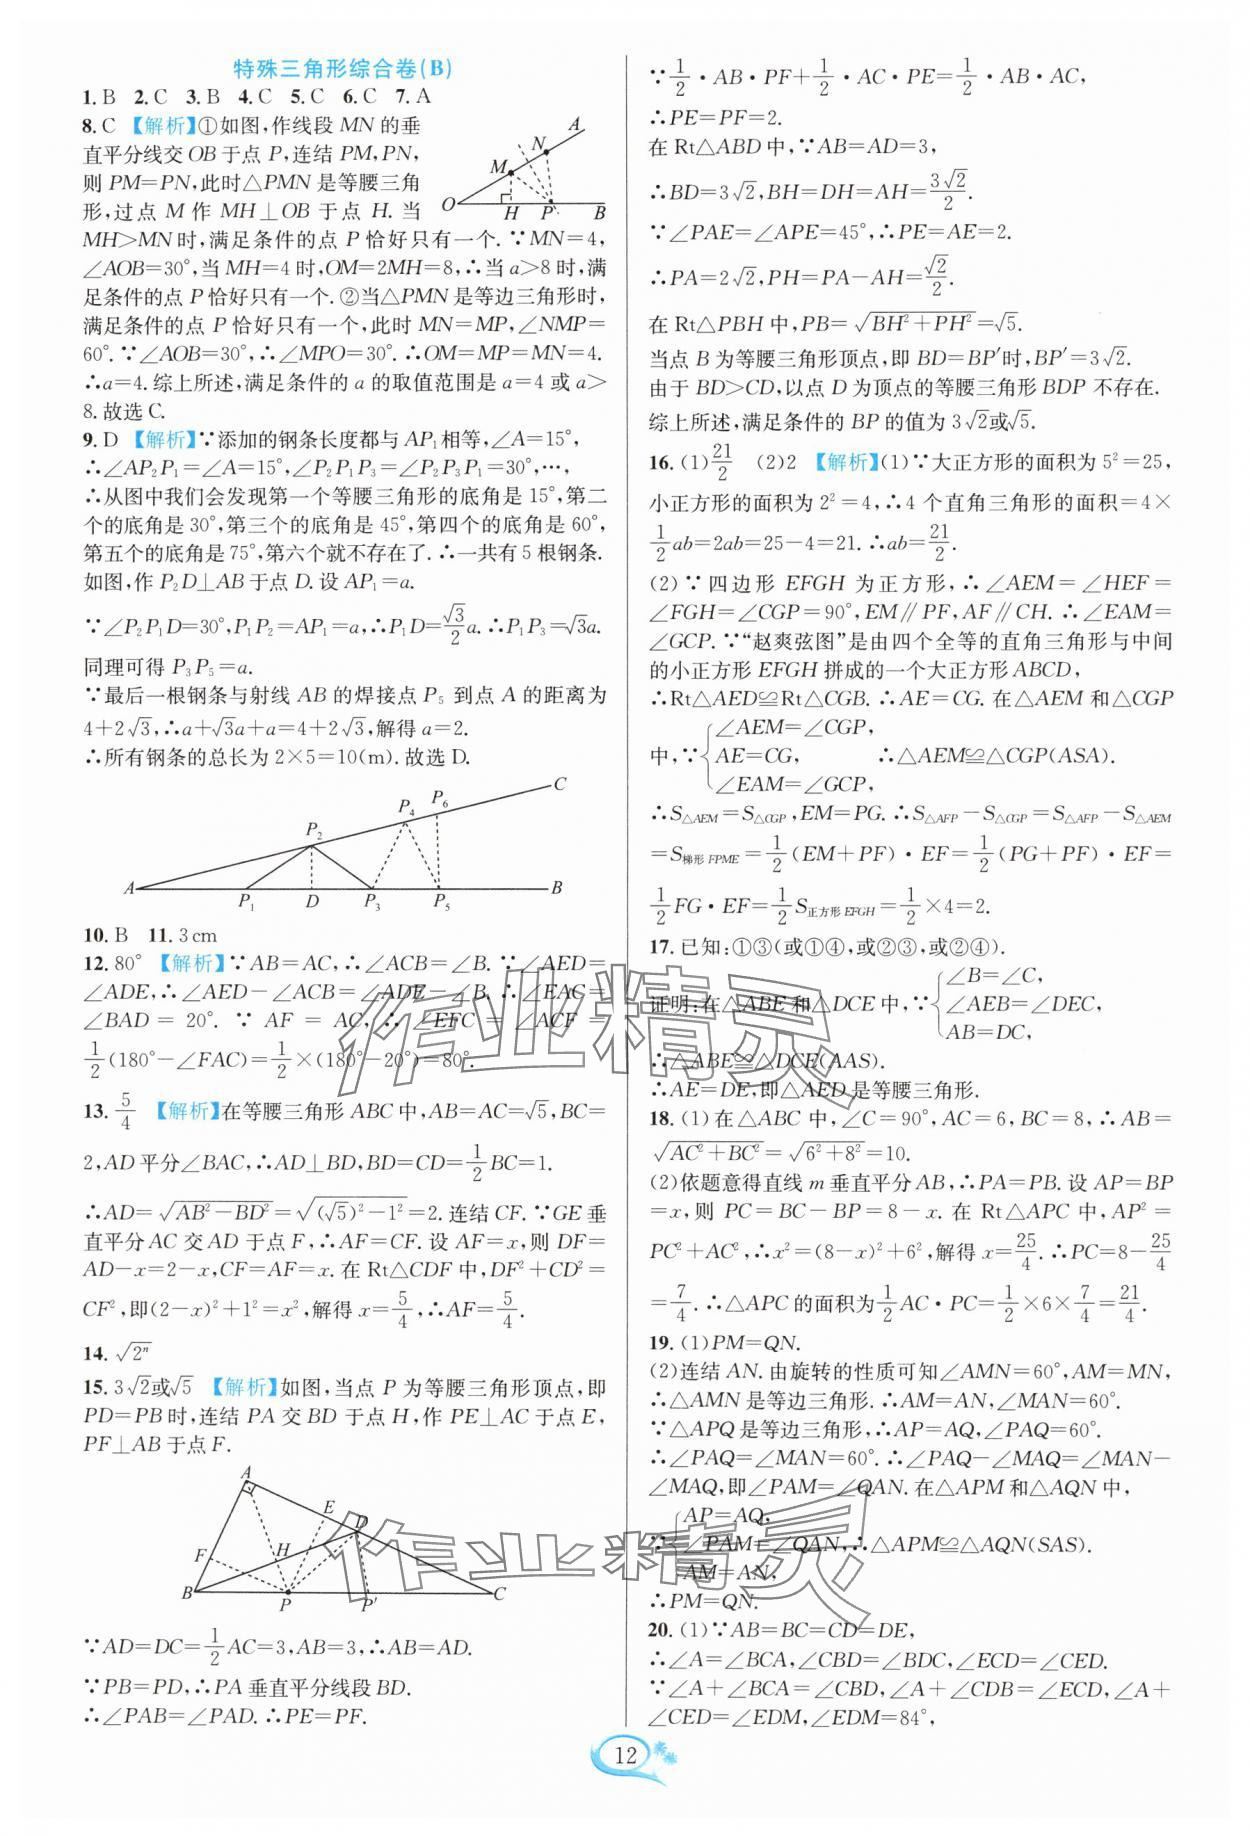 特殊三角形综合卷(B)
1. B  2. C  3. B  4. C  5. C  6. C  7. A
8. C 【解析】①如图,作线段 MN 的垂
直平分线交 OB 于点 P,连结 PM,PN,
则 PM=PN,此时△PMN 是等腰三角
形,过点 M 作 MH⊥OB 于点 H. 当
MH>MN 时,满足条件的点 P 恰好只有一个. ∵MN=4,
∠AOB=30°,当 MH=4 时,OM=2MH=8,∴当 a>8 时,满
足条件的点 P 恰好只有一个. ②当△PMN 是等边三角形时,
满足条件的点 P 恰好只有一个,此时 MN=MP,∠NMP=
60°. ∵∠AOB=30°,∴∠MPO=30°. ∴OM=MP=MN=4.
∴a=4. 综上所述,满足条件的 a 的取值范围是 a=4 或 a>
8. 故选 C.
A
N
M
O
H
P
B
9. D 【解析】∵添加的钢条长度都与 AP₁ 相等,∠A=15°,
∴∠AP₂P₁=∠A=15°,∠P₂P₁P₃=∠P₂P₃P₁=30°,…,
∴从图中我们会发现第一个等腰三角形的底角是 15°,第二
个的底角是 30°,第三个的底角是 45°,第四个的底角是 60°,
第五个的底角是 75°,第六个就不存在了. ∴一共有 5 根钢条.
如图,作 P₂D⊥AB 于点 D. 设 AP₁=a.
∵∠P₂P₁D=30°,P₁P₂=AP₁=a,∴P₁D=√3/2 a. ∴P₁P₃=√3a.
同理可得 P₃P₅=a.
∵最后一根钢条与射线 AB 的焊接点 P₅ 到点 A 的距离为
4+2√3,∴a+√3a+a=4+2√3,解得 a=2.
∴所有钢条的总长为 2×5=10(m). 故选 D.
C
P₆
P₄
P₂
A
P₁
D
P₃
P₅
B
10. B  11. 3 cm
12. 80° 【解析】∵AB=AC,∴∠ACB=∠B. ∵∠AED=
∠ADE,∴∠AED-∠ACB=∠ADE-∠B. ∴∠EAC=
∠BAD=20°. ∵AF=AC,∴∠EFC=∠ACF=
1/2(180°-∠FAC)=1/2×(180°-20°)=80°.
13. 5/4 【解析】在等腰三角形 ABC 中,AB=AC=√5,BC=
2,AD 平分∠BAC,∴AD⊥BD,BD=CD=1/2BC=1.
∴AD=√(AB²-BD²)=√((√5)²-1²)=2. 连结 CF. ∵GE 垂
直平分 AC 交 AD 于点 F,∴AF=CF. 设 AF=x,则 DF=
AD-x=2-x,CF=AF=x. 在 Rt△CDF 中,DF²+CD²=
CF²,即(2-x)²+1²=x²,解得 x=5/4,∴AF=5/4.
14. √(2ⁿ)
15. 3√2或√5 【解析】如图,当点 P 为等腰三角形顶点,即
PD=PB 时,连结 PA 交 BD 于点 H,作 PE⊥AC 于点 E,
PF⊥AB 于点 F.
A
E
D
H
F
B
P
P′
C
∵AD=DC=1/2AC=3,AB=3,∴AB=AD.
∵PB=PD,∴PA 垂直平分线段 BD.
∴∠PAB=∠PAD. ∴PE=PF.
∵1/2·AB·PF+1/2·AC·PE=1/2·AB·AC,
∴PE=PF=2.
在 Rt△ABD 中,∵AB=AD=3,
∴BD=3√2,BH=DH=AH=3√2/2.
∵∠PAE=∠APE=45°,∴PE=AE=2.
∴PA=2√2,PH=PA-AH=√2/2.
在 Rt△PBH 中,PB=√(BH²+PH²)=√5.
当点 B 为等腰三角形顶点,即 BD=BP′时,BP′=3√2.
由于 BD>CD,以点 D 为顶点的等腰三角形 BDP 不存在.
综上所述,满足条件的 BP 的值为 3√2或√5.
16. (1)21/2  (2)2 【解析】(1)∵大正方形的面积为 5²=25,
小正方形的面积为 2²=4,∴4 个直角三角形的面积=4×
1/2ab=2ab=25-4=21. ∴ab=21/2.
(2)∵四边形 EFGH 为正方形,∴∠AEM=∠HEF=
∠FGH=∠CGP=90°,EM∥PF,AF∥CH. ∴∠EAM=
∠GCP. ∵“赵爽弦图”是由四个全等的直角三角形与中间
的小正方形 EFGH 拼成的一个大正方形 ABCD,
∴Rt△AED≌Rt△CGB. ∴AE=CG. 在△AEM 和△CGP
中,∵{∠AEM=∠CGP,
AE=CG,
∠EAM=∠GCP,
∴△AEM≌△CGP(ASA).
∴S△AEM=S△CGP,EM=PG. ∴S△AFP-S△CGP=S△AFP-S△AEM
=S梯形FPME=1/2(EM+PF)·EF=1/2(PG+PF)·EF=
1/2FG·EF=1/2S正方形EFGH=1/2×4=2.
17. 已知:①③(或①④,或②③,或②④).
证明:在△ABE 和△DCE 中,∵{∠B=∠C,
∠AEB=∠DEC,
AB=DC,
∴△ABE≌△DCE(AAS).
∴AE=DE,即△AED 是等腰三角形.
18. (1)在△ABC 中,∠C=90°,AC=6,BC=8,∴AB=
√(AC²+BC²)=√(6²+8²)=10.
(2)依题意得直线 m 垂直平分 AB,∴PA=PB. 设 AP=BP
=x,则 PC=BC-BP=8-x. 在 Rt△APC 中,AP²=
PC²+AC²,∴x²=(8-x)²+6²,解得 x=25/4. ∴PC=8-25/4
=7/4. ∴△APC 的面积为1/2AC·PC=1/2×6×7/4=21/4.
19. (1)PM=QN.
(2)连结 AN. 由旋转的性质可知∠AMN=60°,AM=MN,
∴△AMN 是等边三角形. ∴AM=AN,∠MAN=60°.
∵△APQ 是等边三角形,∴AP=AQ,∠PAQ=60°.
∴∠PAQ=∠MAN=60°. ∴∠PAQ-∠MAQ=∠MAN-
∠MAQ,即∠PAM=∠QAN. 在△APM 和△AQN 中,
∵{AP=AQ,
∠PAM=∠QAN,
AM=AN,
∴△APM≌△AQN(SAS).
∴PM=QN.
20. (1)∵AB=BC=CD=DE,
∴∠A=∠BCA,∠CBD=∠BDC,∠ECD=∠CED.
∵∠A+∠BCA=∠CBD,∠A+∠CDB=∠ECD,∠A+
∠CED=∠EDM,∠EDM=84°,
作业精灵
作业精灵
12